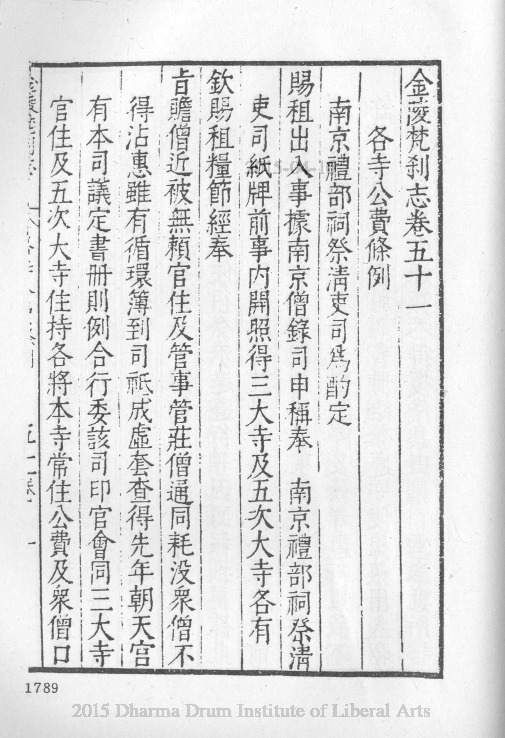 金陵梵刹志卷五十一
各寺公費條例
南京禮部祠祭清吏司為酌定
賜租出入事據南京僧錄司申稱奉　南京禮部祠祭清
吏司紙牌前事內開照得三大寺及五次大寺各有
欽賜租糧節經奉
旨贍僧近被無賴官住及管事管莊僧通同耗没衆僧不
得沾惠雖有循環簿到司祗成虛套查得先年朝天宮
有本司議定書冊則例合行委該司印官會同三大寺
官住及五次大寺住持各將本寺常住公費及衆僧口
1789
2015 Dharma Drum Institute of Liberal Arts